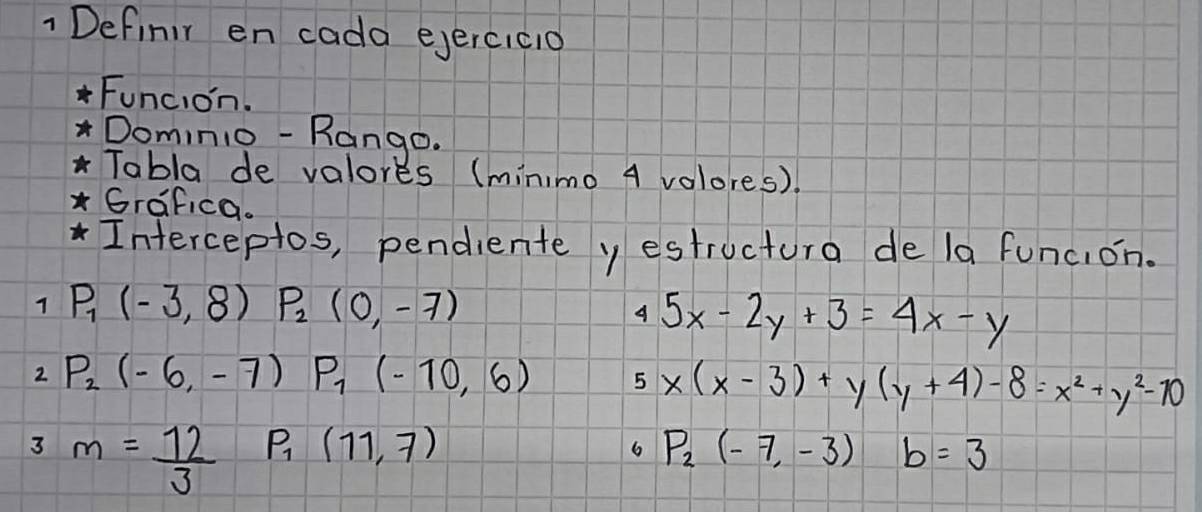 1 Definir en cada ejercicio
* Función.
* Dominio - Rango.
* Tabla de valores (mínimo 4 valores).
* Gráfica.
* Interceptos, pendiente y estructura de la función.
1 P₁ (-3, 8) P₂ (0, -7)
2 P₂ (-6, -7) P₁ (-10, 6)
3 m = 12/3 P₁ (11, 7)
4 5x - 2y + 3 = 4x - y
5 x(x - 3) + y(y + 4) - 8 = x² + y² - 10
6 P₂ (-7, -3) b = 3